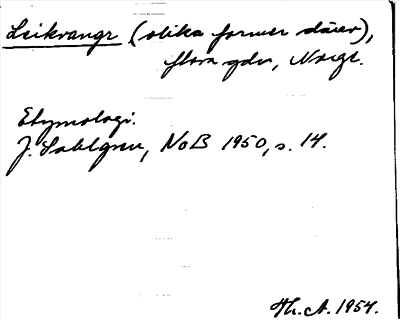 Leikvangr (olika former därav),
flera gdr, Norge.
Etymologi.
J. Sahlgren, NoB 1950, s. 14.
Th. A. 1954.